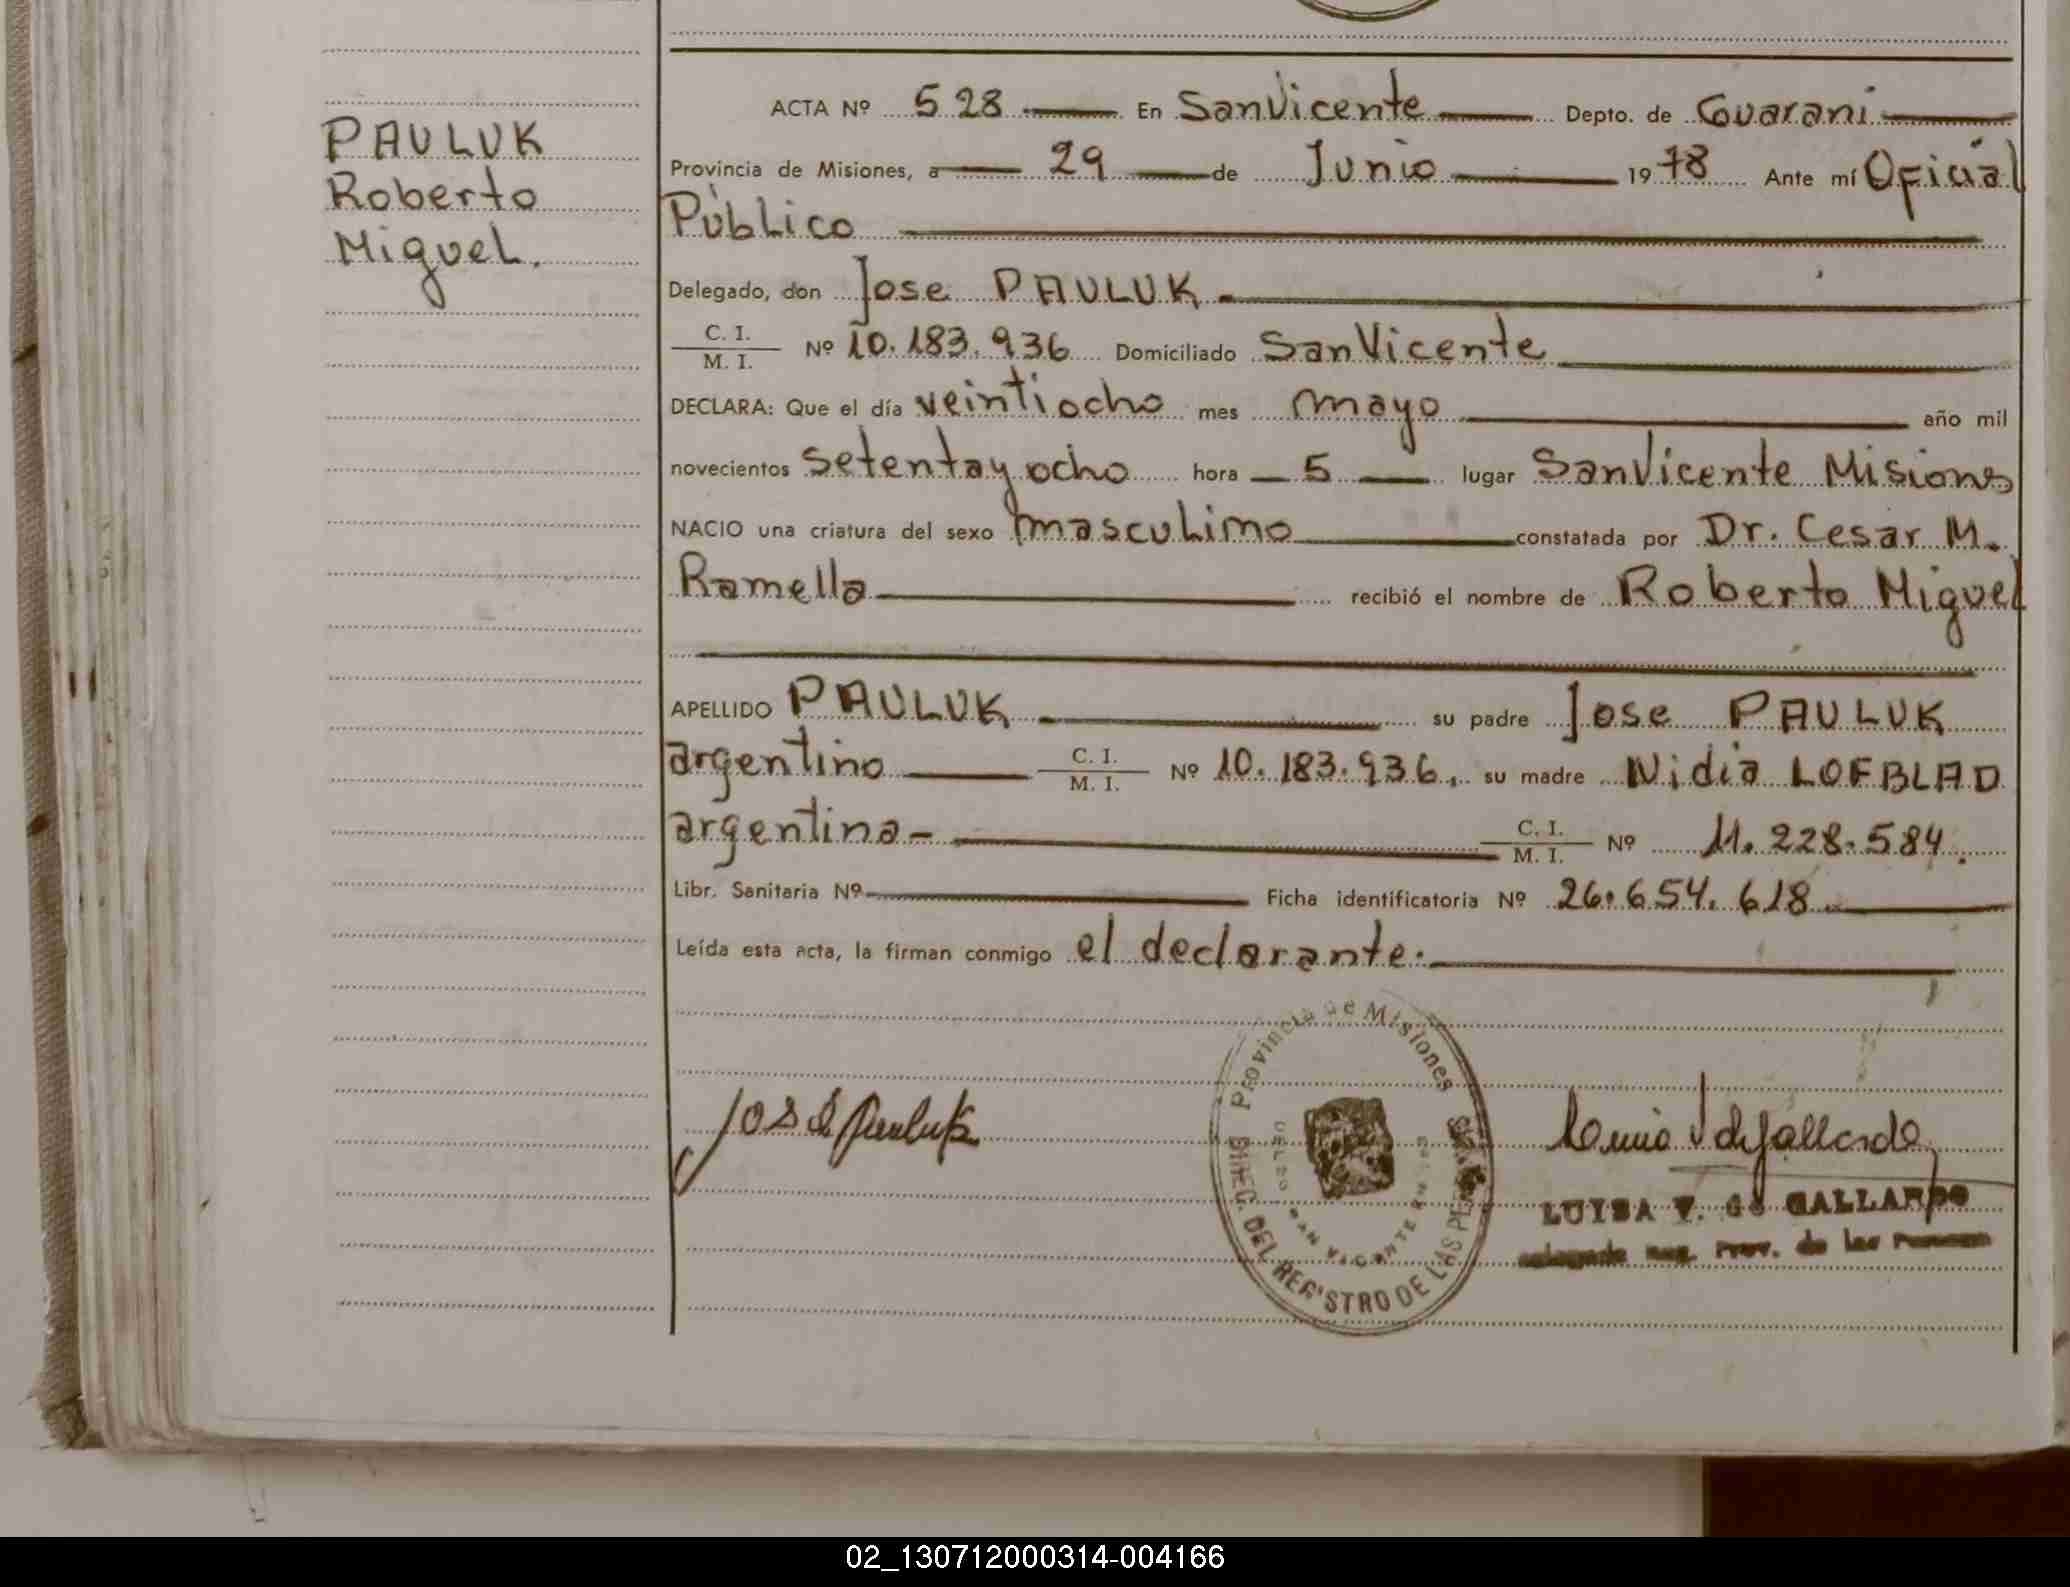 PAULUK
Roberto
Miguel.
ACTA Nº 528 En San Vicente Depto. de Guarani
Provincia de Misiones, a 29 de Junio 1978 Ante mí Oficial
Público
Delegado, don Jose PAULUK
C. I.
M. I. Nº 10.183.936 Domiciliado San Vicente
DECLARA: Que el día veintiocho mes mayo año mil
novecientos setenta y ocho hora 5 lugar San Vicente Misiones
NACIO una criatura del sexo masculino constatada por Dr. Cesar M.
Ramella recibió el nombre de Roberto Miguel
APELLIDO PAULUK su padre Jose PAULUK
argentino C. I. M. I. Nº 10.183.936, su madre Nidia LOFBLAD
argentina C. I. M. I. Nº 11.228.584.
Libr. Sanitaria Nº Ficha identificatoria Nº 26.654.618
Leída esta acta, la firman conmigo el declarante.
José Pauluk
Provincia de Misiones
DIREC. DEL REGISTRO DE LAS
SAN VICENTE
LUISA V. GALLARDO
Prov. de las
02_130712000314-004166